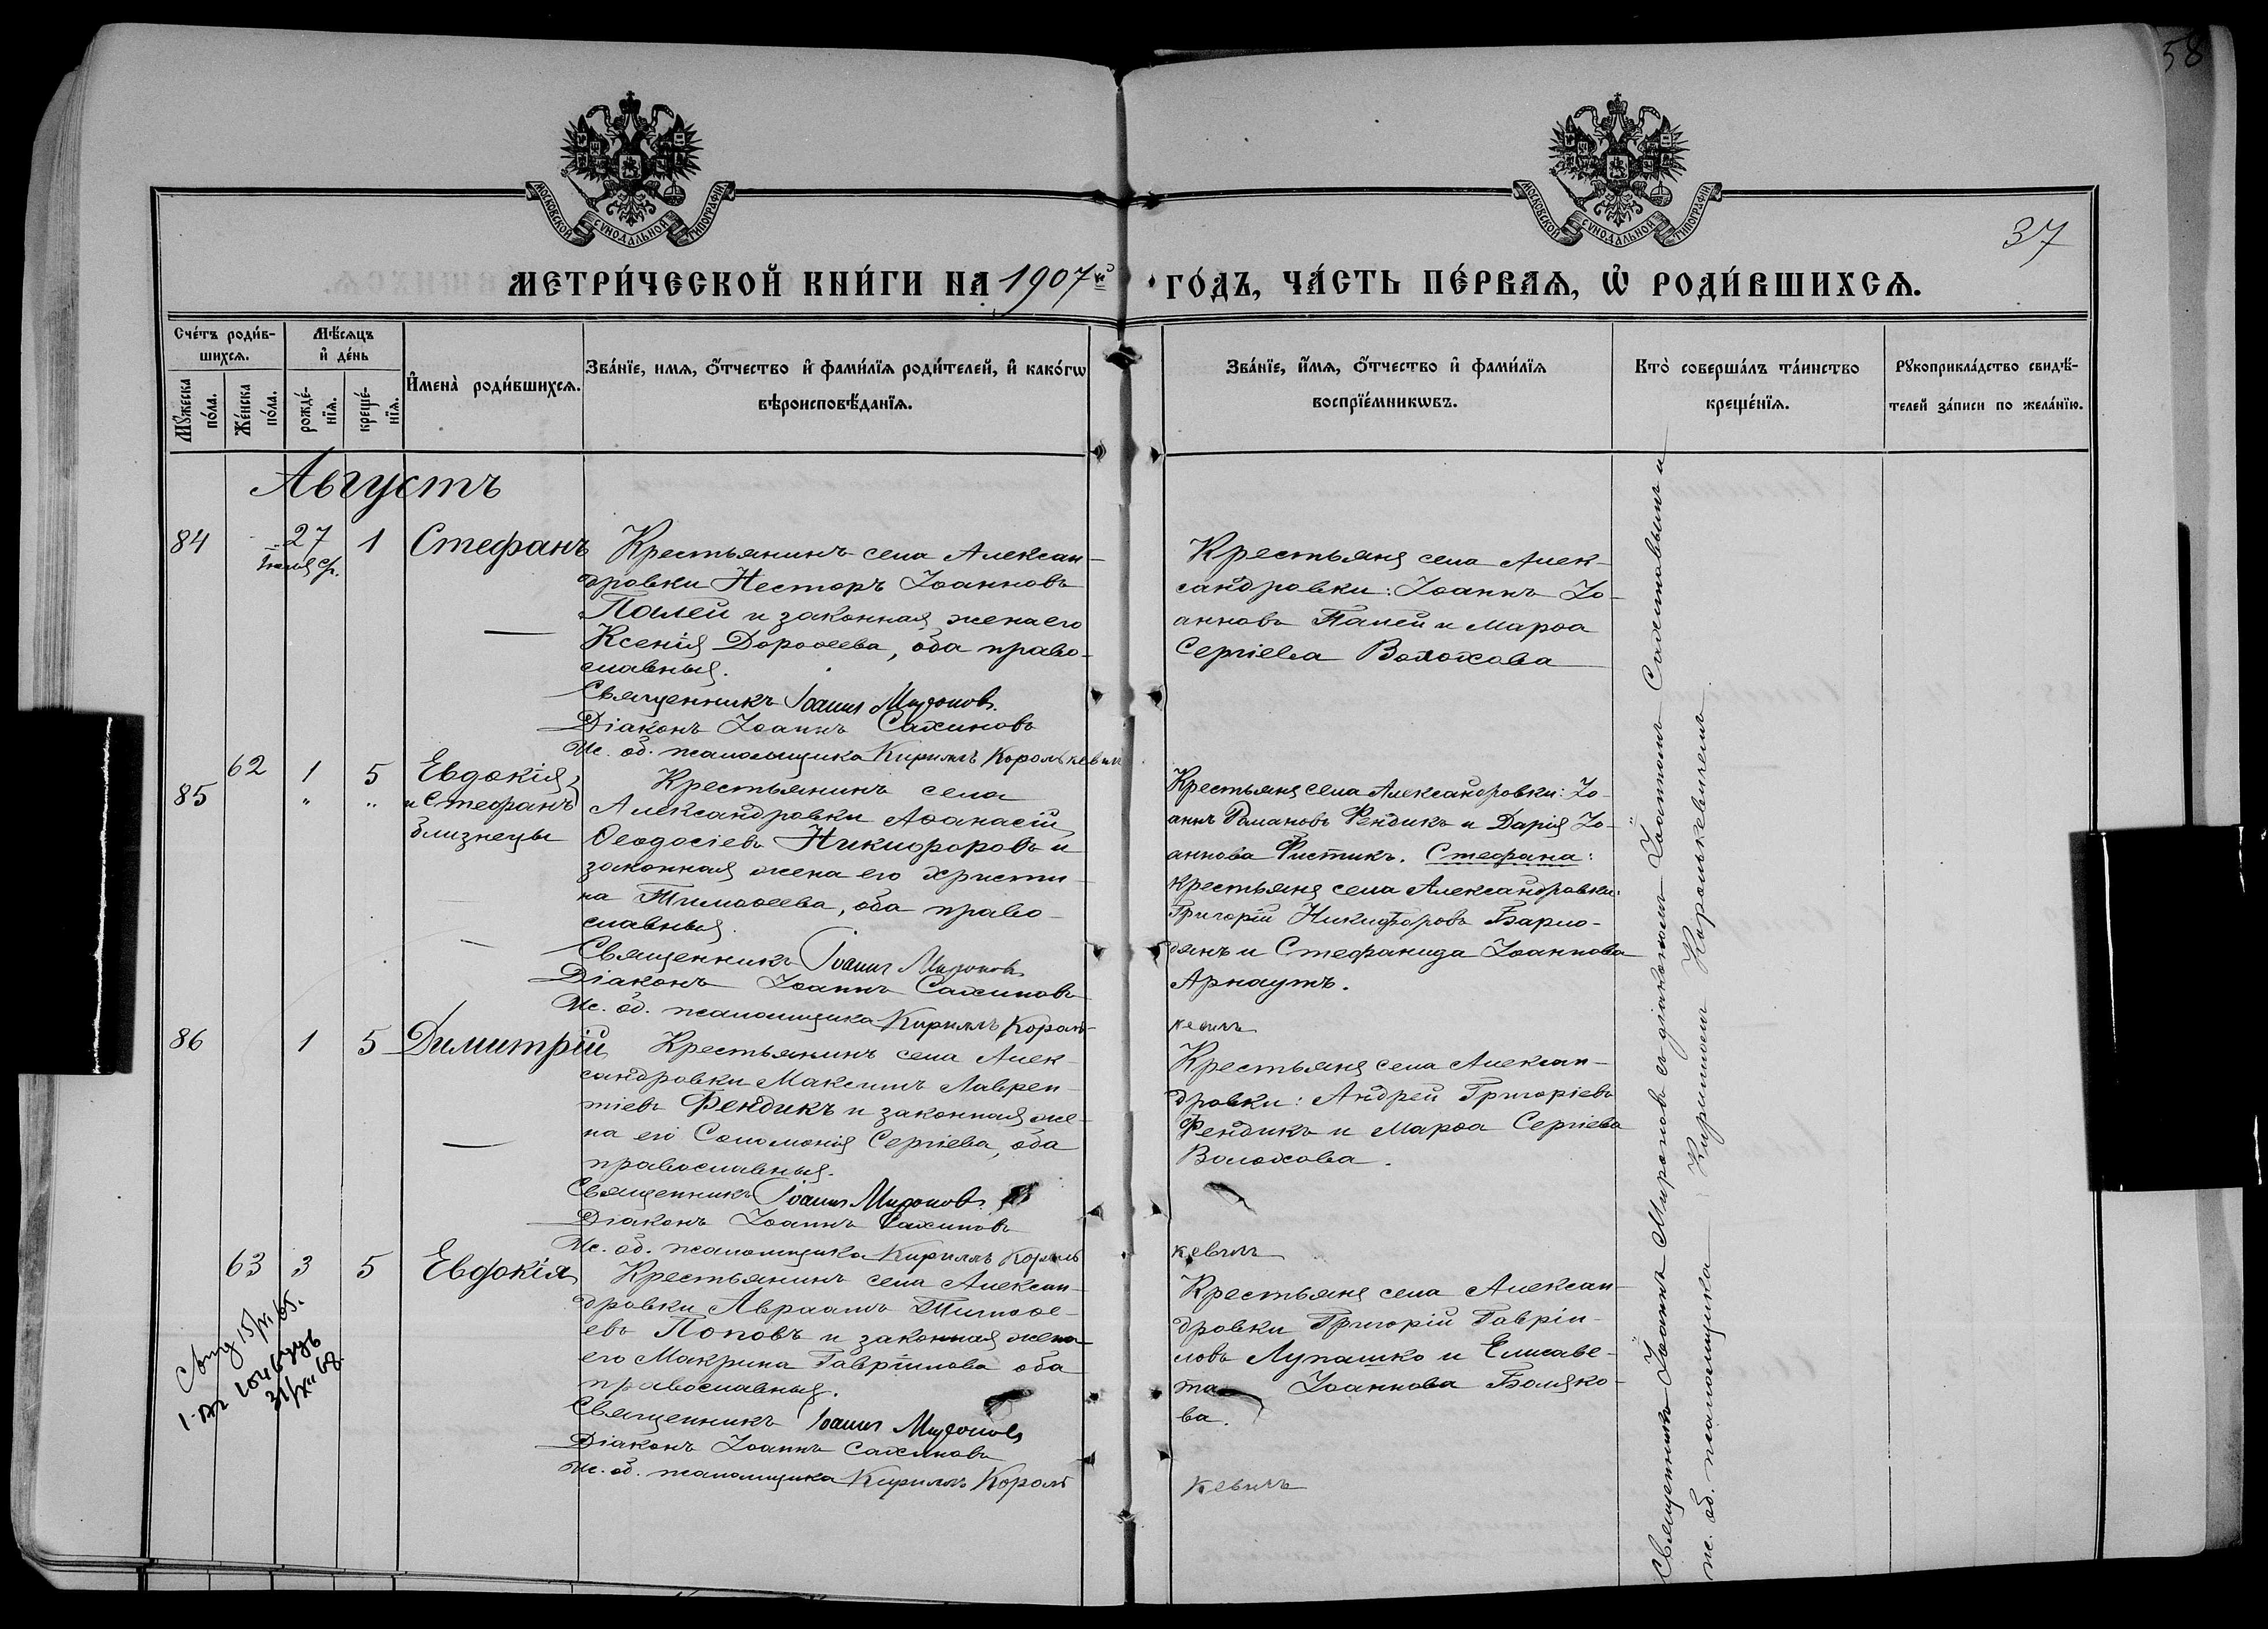 58
МОСКОВСКОЙ СѴНОДАЛЬНОЙ ТИПОГРАФІИ
МОСКОВСКОЙ СѴНОДАЛЬНОЙ ТИПОГРАФІИ
37
МЕТРИ́ЧЕСКОЙ КНИ́ГИ НА 1907й ГО́ДЪ, ЧА́СТЬ ПЕ́РВАѦ, Ѡ҆ РОДИ́ВШИХСѦ.
Сче́тъ роди́в-
шихсѧ.
Мꙋжеска
по́ла.
Же́нска
по́ла.
Мѣ́сѧцъ
и҆ де́нь
рожде́-
нїѧ.
креще́-
нїѧ.
И҆мена̀ роди́вшихсѧ.
Зва́нїе, имѧ, ѻ҆́тчество и҆ фами́лїѧ роди́телей, и҆ како́гѡ
вѣроисповѣ́данїѧ.
Зва́нїе, и҆́мѧ, ѻ҆́тчество и҆ фами́лїѧ
воспрїе́мникѡвъ.
Кто̀ соверша́лъ та́инство
креще́нїѧ.
Рꙋкоприкла́дство свидѣ́-
телей за́писи по жела́нїю.
Августъ
84 27 1 Стефанъ
Крестьянинъ села Алексан-
дровки Несторъ Іоанновъ
Палей и законная жена его
Ксенія Дороѳеева, оба право-
славныя.
Священникъ Іоаннъ Мироновъ.
Діаконъ Іоаннъ Сахиновъ
Ис. об. псаломщика Кириллъ Королькевичъ
Крестьяне села Алек-
сандровки: Іоаннъ Іо-
анновъ Палей и Марѳа
Сергіева Волохова
62 1 5 Евдокія
85 " " и Стефанъ
близнецы
Крестьянинъ села
Александровки Аѳанасій
Ѳеодосіевъ Никифоровъ и
законная жена его Христи-
на Тимоѳеева, оба право-
славныя.
Священникъ Іоаннъ Мироновъ
Діаконъ Іоаннъ Сахиновъ
Ис. об. псаломщика Кириллъ Король-
кевичъ
Крестьяне села Александровки: Іо-
аннъ Романовъ Фендикъ и Дарія Іо-
аннова Фистикъ. Стефана:
крестьяне села Александровки:
Григорій Никифоровъ Барло-
дянъ и Стефанида Іоаннова
Арнаутъ.
86 1 5 Димитрій
Крестьянинъ села Алек-
сандровки Максимъ Лаврен-
тіевъ Фендикъ и законная же-
на его Соломонія Сергіева, оба
православныя.
Священникъ Іоаннъ Мироновъ.
Діаконъ Іоаннъ Сахиновъ
Ис. об. псаломщика Кириллъ Король
кевичъ
Крестьяне села Алексан-
дровки: Андрей Григоріевъ
Фендикъ и Марѳа Сергіева
Волохова.
63 3 5 Евдокія
Крестьянинъ села Алексан-
дровки Авраамъ Тимоѳе-
евъ Поповъ и законная жена
его Макрина Гавріилова оба
православныя.
Священникъ Іоаннъ Мироновъ
Діаконъ Іоаннъ Сахиновъ
Ис. об. псаломщика Кириллъ Король
кевичъ
Крестьяне села Алексан-
дровки Григорій Гавріи-
ловъ Лупашко и Елисаве-
та Іоаннова Боляко-
ва.
Священникъ Іоаннъ Мироновъ съ діакономъ Іоанномъ Сахиновымъ и
ис. об. псаломщика Кирилломъ Королькевичемъ.